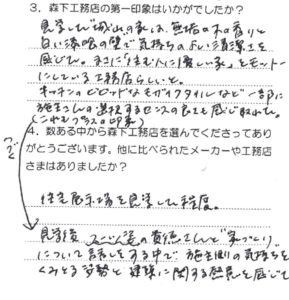 3．森下工務店の第一印象はいかがでしたか？
見学した「城山の家」は、無垢の木の香りと
白い漆喰の壁で気持ちのよい清潔さを
感じた。まさに「住む人に優しい家」をモットー
にしている工務店らしいと。
キッチンのビビッドなモザイクタイルなど一部に
施主さんの選択するセンスの良さも感じ取れた。
（これもプラスの印象）
4．数ある中から森下工務店を選んでくださってあり
がとうございます。他に比べられたメーカーや工務店
さまはありましたか？
つづく
住宅展示場を見学した程度。
見学後 の さんと「家づくり」
について話しをする中で 施主側の気持ちを
くみとる姿勢と 建築に関する熱意を感じて